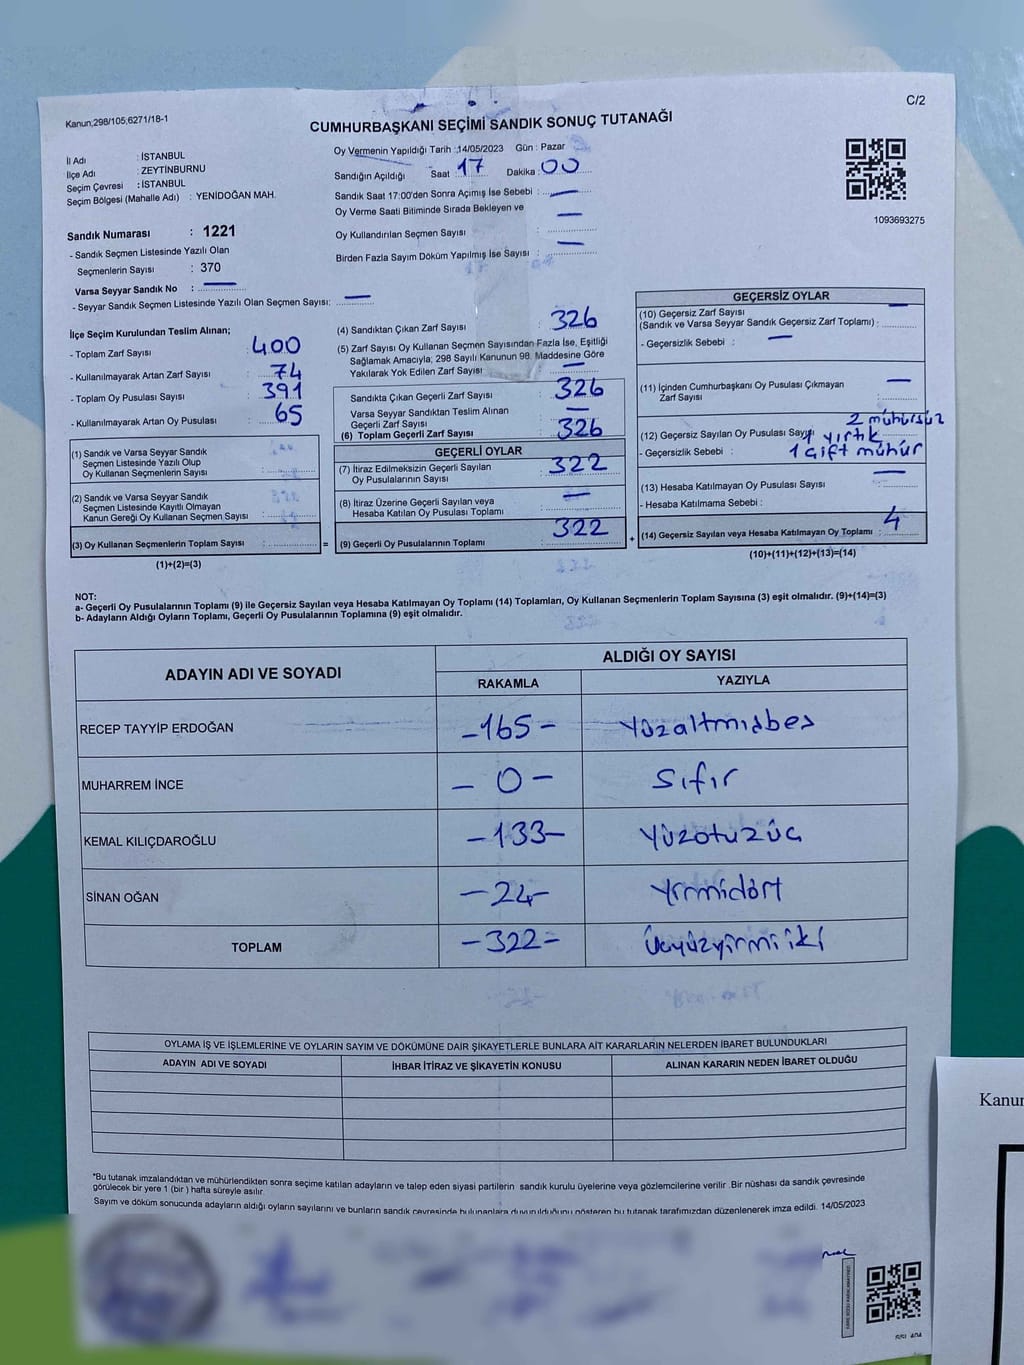 C/2
Kanun;298/105,6271/18-1
CUMHURBAŞKANI SEÇİMİ SANDIK SONUÇ TUTANAĞI
İl Adı : İSTANBUL
İlçe Adı : ZEYTİNBURNU
Seçim Çevresi : İSTANBUL
Seçim Bölgesi (Mahalle Adı) : YENİDOĞAN MAH.
Oy Vermenin Yapıldığı Tarih :14/05/2023 Gün : Pazar
Sandığın Açıldığı Saat : 17 Dakika : 00
Sandık Saat 17:00'den Sonra Açımış İse Sebebi : —
Oy Verme Saati Bitiminde Sırada Bekleyen ve
Oy Kullandırılan Seçmen Sayısı : —
Birden Fazla Sayım Döküm Yapılmış İse Sayısı : —
1093693275
Sandık Numarası : 1221
- Sandık Seçmen Listesinde Yazılı Olan
Seçmenlerin Sayısı : 370
Varsa Seyyar Sandık No : —
- Seyyar Sandık Seçmen Listesinde Yazılı Olan Seçmen Sayısı: —
İlçe Seçim Kurulundan Teslim Alınan;
- Toplam Zarf Sayısı : 400
- Kullanılmayarak Artan Zarf Sayısı : 74
- Toplam Oy Pusulası Sayısı : 391
- Kullanılmayarak Artan Oy Pusulası : 65
(1) Sandık ve Varsa Seyyar Sandık
Seçmen Listesinde Yazılı Olup
Oy Kullanan Seçmenlerin Sayısı :
(2) Sandık ve Varsa Seyyar Sandık
Seçmen Listesinde Kayıtlı Olmayan
Kanun Gereği Oy Kullanan Seçmen Sayısı :
(3) Oy Kullanan Seçmenlerin Toplam Sayısı : =
(1)+(2)=(3)
(4) Sandıktan Çıkan Zarf Sayısı : 326
(5) Zarf Sayısı Oy Kullanan Seçmen Sayısından Fazla İse, Eşitliği
Sağlamak Amacıyla; 298 Sayılı Kanunun 98. Maddesine Göre
Yakılarak Yok Edilen Zarf Sayısı : —
Sandıkta Çıkan Geçerli Zarf Sayısı : 326
Varsa Seyyar Sandıktan Teslim Alınan
Geçerli Zarf Sayısı : —
(6) Toplam Geçerli Zarf Sayısı : 326
GEÇERLİ OYLAR
(7) İtiraz Edilmeksizin Geçerli Sayılan
Oy Pusulalarının Sayısı : 322
(8) İtiraz Üzerine Geçerli Sayılan veya
Hesaba Katılan Oy Pusulası Toplamı : —
(9) Geçerli Oy Pusulalarının Toplamı : 322 +
GEÇERSİZ OYLAR
(10) Geçersiz Zarf Sayısı
(Sandık ve Varsa Seyyar Sandık Geçersiz Zarf Toplamı) : —
- Geçersizlik Sebebi : —
(11) İçinden Cumhurbaşkanı Oy Pusulası Çıkmayan
Zarf Sayısı : —
2 mühürsüz
(12) Geçersiz Sayılan Oy Pusulası Sayısı 1 yırtık
- Geçersizlik Sebebi : 1 Çift mühür
(13) Hesaba Katılmayan Oy Pusulası Sayısı : —
- Hesaba Katılmama Sebebi :
(14) Geçersiz Sayılan veya Hesaba Katılmayan Oy Toplamı : 4
(10)+(11)+(12)+(13)=(14)
NOT:
a- Geçerli Oy Pusulalarının Toplamı (9) ile Geçersiz Sayılan veya Hesaba Katılmayan Oy Toplamı (14) Toplamları, Oy Kullanan Seçmenlerin Toplam Sayısına (3) eşit olmalıdır. (9)+(14)=(3)
b- Adayların Aldığı Oyların Toplamı, Geçerli Oy Pusulalarının Toplamına (9) eşit olmalıdır.
ADAYIN ADI VE SOYADI ALDIĞI OY SAYISI
RAKAMLA YAZIYLA
RECEP TAYYİP ERDOĞAN -165- Yüzaltmışbeş
MUHARREM İNCE - 0 - Sıfır
KEMAL KILIÇDAROĞLU -133- Yüzotuzüç
SİNAN OĞAN -24- Yirmidört
TOPLAM -322- Üçyüzyirmiiki
OYLAMA İŞ VE İŞLEMLERİNE VE OYLARIN SAYIM VE DÖKÜMÜNE DAİR ŞİKAYETLERLE BUNLARA AİT KARARLARIN NELERDEN İBARET BULUNDUKLARI
ADAYIN ADI VE SOYADI İHBAR İTİRAZ VE ŞİKAYETİN KONUSU ALINAN KARARIN NEDEN İBARET OLDUĞU
*Bu tutanak imzalandıktan ve mühürlendikten sonra seçime katılan adayların ve talep eden siyasi partilerin sandık kurulu üyelerine veya gözlemcilerine verilir .Bir nüshası da sandık çevresinde
görülecek bir yere 1 (bir ) hafta süreyle asılır.
Sayım ve döküm sonucunda adayların aldığı oyların sayılarını ve bunların sandık çevresinde bulunanlara duyurulduğunu gösteren bu tutanak tarafımızdan düzenlenerek imza edildi. 14/05/2023
Kanun